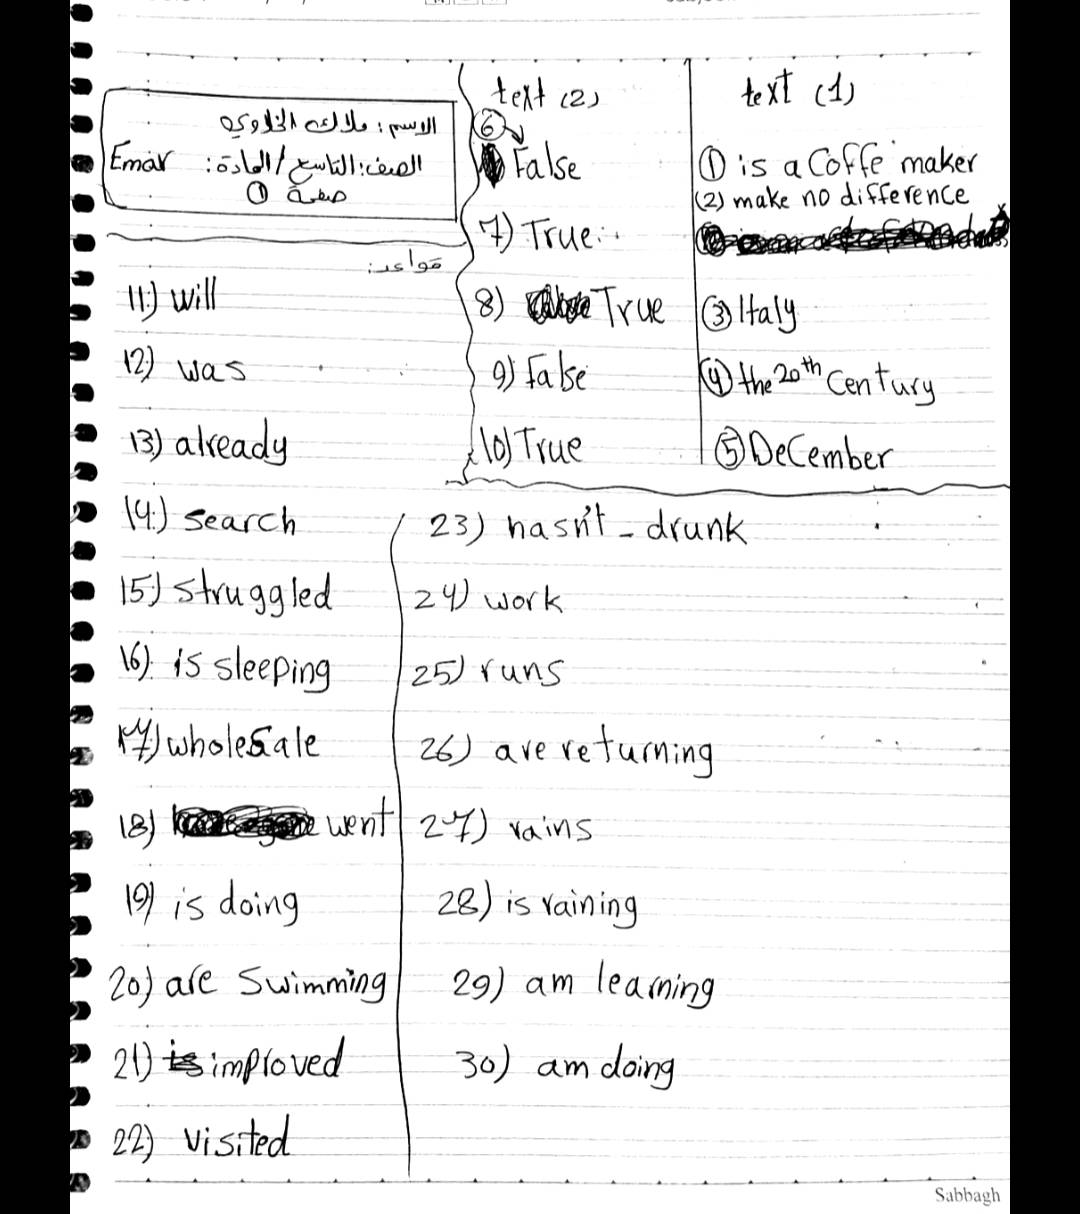 text (1)
① is a Coffe maker
(2) make no difference
③ Italy
④ the 20th Century
⑤ DeCember
text (2)
⑥
False
7) True
8) True
9) false
10) True
الاسم: ملاك
الصف: التاسع / المادة: Emar
صفحة ①
قواعد:
11) will
12) was
13) already
14) search
15) struggled
16) is sleeping
17) wholesale
18) went
19) is doing
20) are swimming
21) improved
22) visited
23) hasn't - drunk
24) work
25) runs
26) are returning
27) rains
28) is raining
29) am learning
30) am doing
Sabbagh